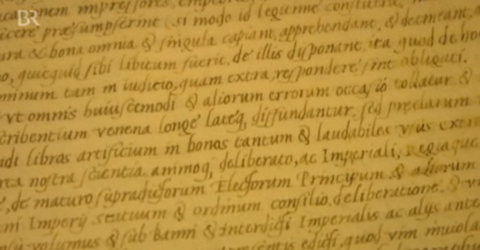 BR
nom impressores, emptore
ucere præsumpserint, si modo id legitime constiterit,
ura & bona omnia & singula capiant, apprehendant, & detineant,
o, quicquid sibi libitum fuerit, de illis disponant, ita quod de ho
minum tam in iudicio, quam extra, respondere sint obligati.
vt omnis huiuscemodi & aliorum errorum occasio tollatur &
cribentium venena longe lateq, diffundantur, sed præclarum
ndi libros artificium in bonos tantum & laudabiles vsus exer
rta nostra scientia, animoq, deliberato, ac Imperiali,
, de maturo supradictorum Electorum Principum & aliorum
ni Imperij statuum & ordinum consilio, deliberatione, & v
volumus & sub banni & interdicti Imperialis ac alijs
edicti, quod vim inuiola